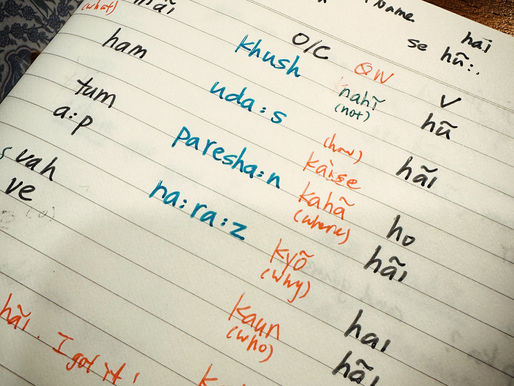 (what)
mãi
Name
se
hai
hũ:.
ham
O/C
Khush
QW
V
tum
a:p
uda:s
nahĩ
(not)
hũ
vah
ve
paresha:n
(how)
kai:se
hãi
na:ra:z
kahã
(where)
ho
hãi
kyõ
(why)
kaun
(who)
hai
hãi
hãi. I got it!